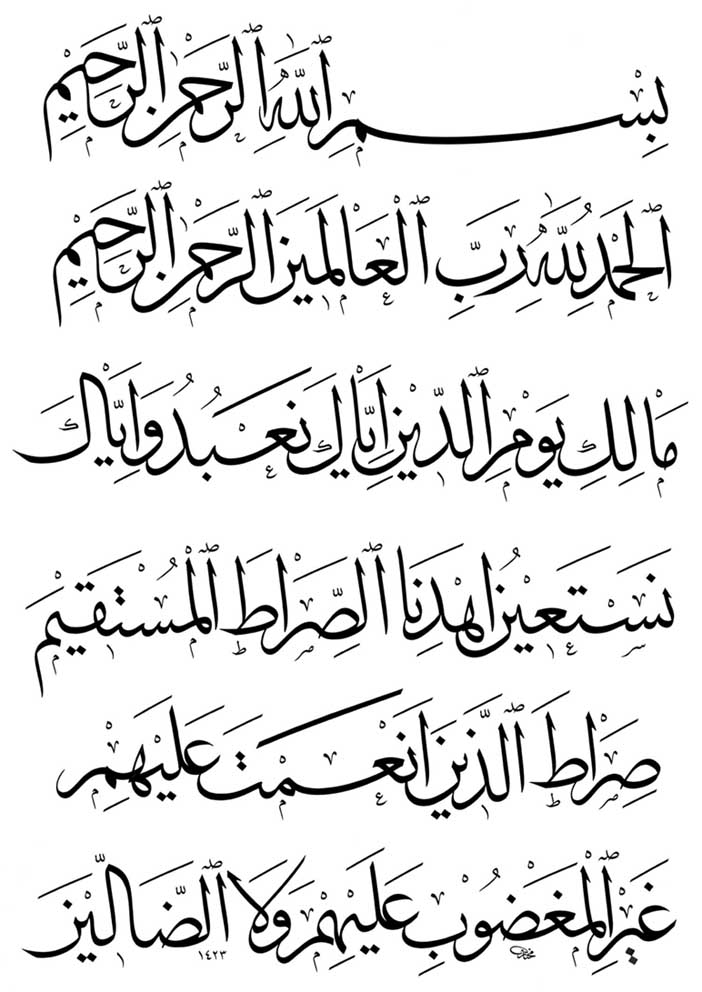 بِسْمِ ٱللَّهِ ٱلرَّحْمٰنِ ٱلرَّحِيْمِ
ٱلْحَمْدُ لِلَّهِ رَبِّ ٱلْعَالَمِيْنَ ٱلرَّحْمٰنِ ٱلرَّحِيْمِ
مَالِكِ يَوْمِ ٱلدِّيْنِ اِيَّاكَ نَعْبُدُ وَاِيَّاكَ
نَسْتَعِيْنُ اِهْدِنَا ٱلصِّرَاطَ ٱلْمُسْتَقِيْمَ
صِرَاطَ ٱلَّذِيْنَ اَنْعَمْتَ عَلَيْهِمْ
غَيْرِ ٱلْمَغْضُوْبِ عَلَيْهِمْ وَلَا ٱلضَّالِّيْنَ
١٤٢٣